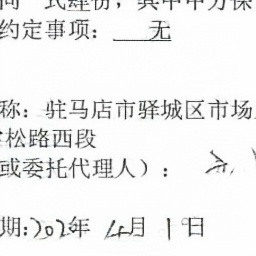 同一式肆份，其中甲方保
约定事项：无
称：驻马店市驿城区市场
松路西段
或委托代理人）：
期：2020年4月1日